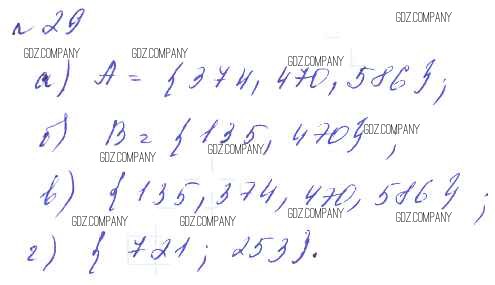 №29
а) А = {374, 470, 586};
б) В = {135, 470},
в) {135, 374, 470, 586};
г) {721; 253}.
GDZ.COMPANY
GDZ.COMPANY
GDZ.COMPANY
GDZ.COMPANY
GDZ.COMPANY
GDZ.COMPANY
GDZ.COMPANY
GDZ.COMPANY
GDZ.COMPANY
GDZ.COMPANY
GDZ.COMPANY